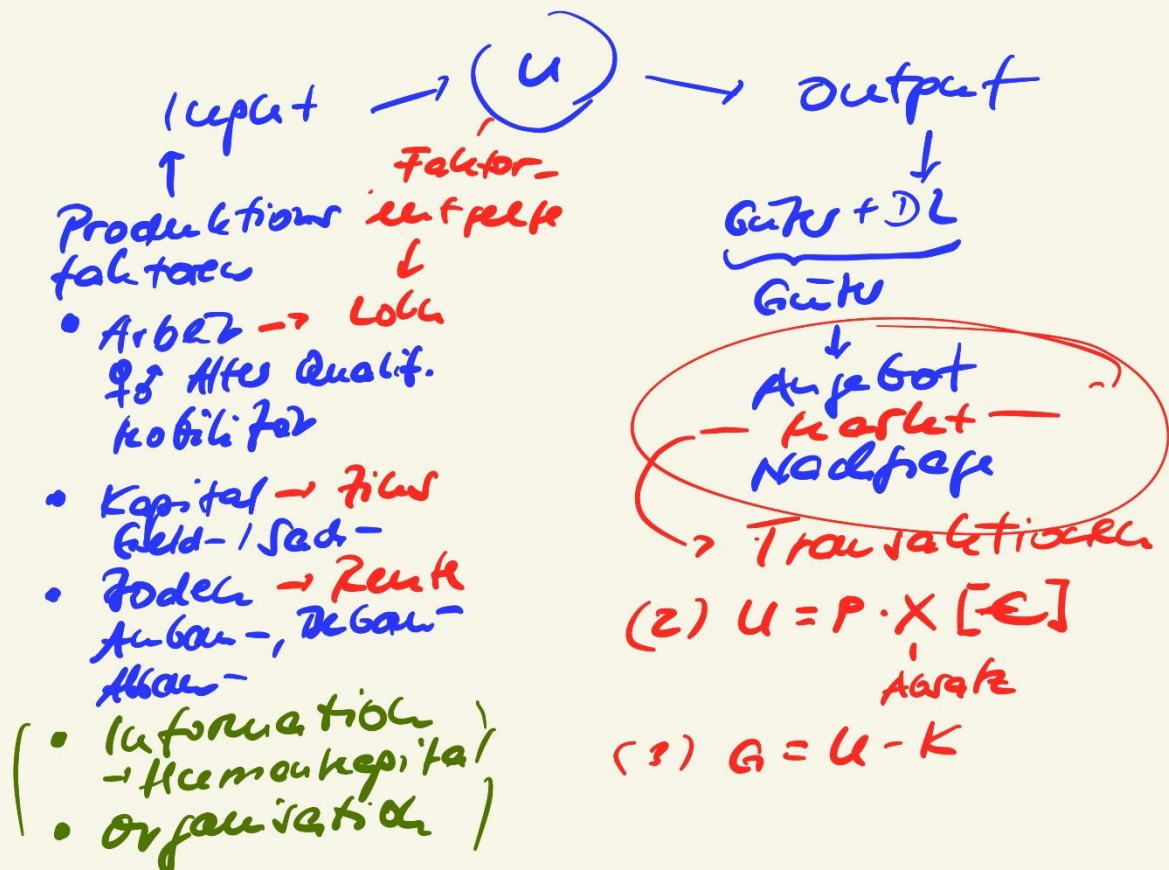 Input → U → Output
Produktions
faktoren
Faktor-
entgelte
• Arbeit → Lohn
♀♂ Alter Qualif.
Mobilität
• Kapital → Zins
Geld- / Sach-
• Boden → Rente
Anbau-, Bebau-
Abbau-
( • Information
→ Humankapital
• Organisation )
Güter + DL
Güter
Angebot
— Markt —
Nachfrage
→ Transaktionen
(2) U = P · X [€]
Absatz
(1) G = U - K